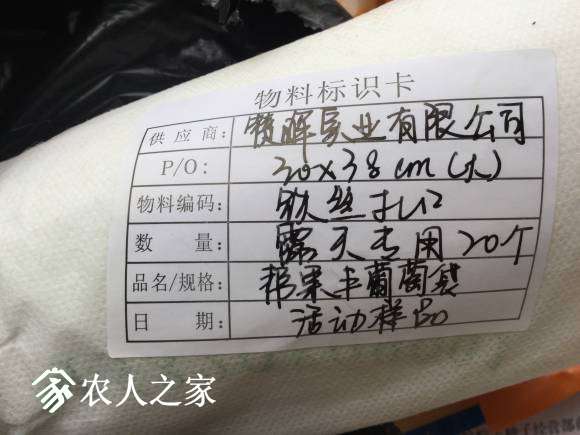 物料标识卡
供应商: 贊晖实业有限公司
P/O: 30×38cm(大)
物料编码: 铁丝扎口
数量: 露天专用20个
品名/规格: 邦果丰葡萄袋
日期: 活动样品
农人之家